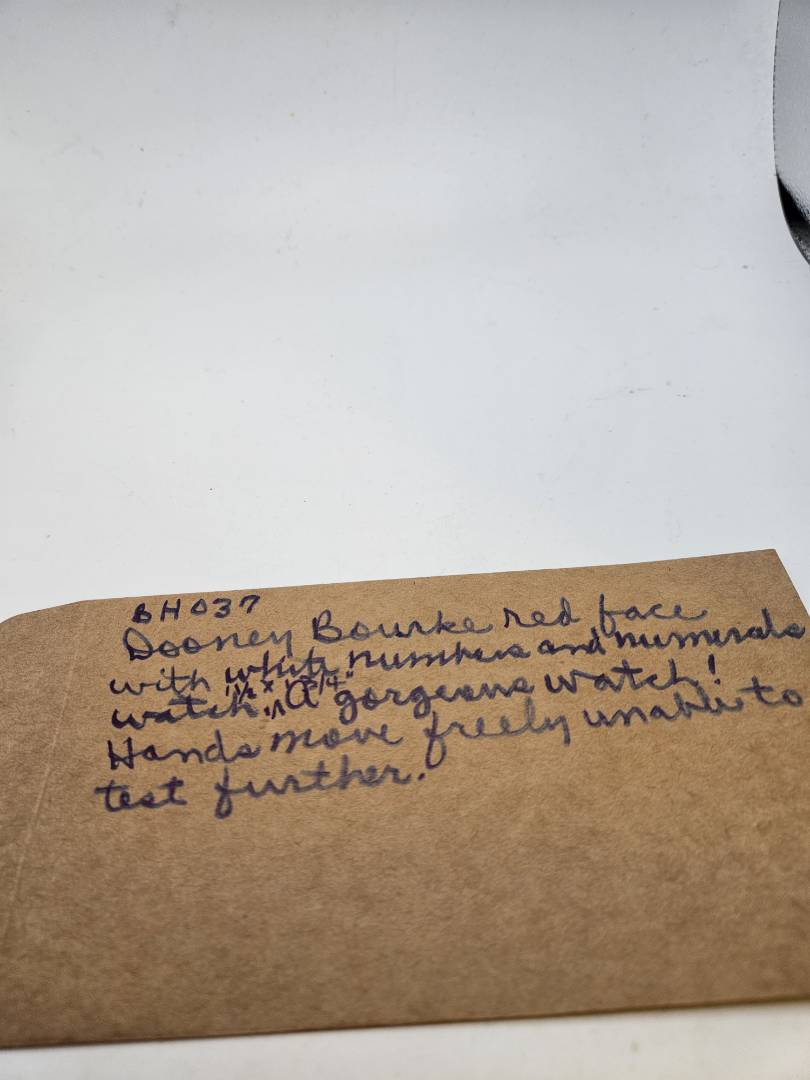 BH037
Dooney Bourke red face
with white numbers and numerals
watch. 1 1/2 x 1 3/4" A gorgeous watch!
Hands move freely unable to
test further.